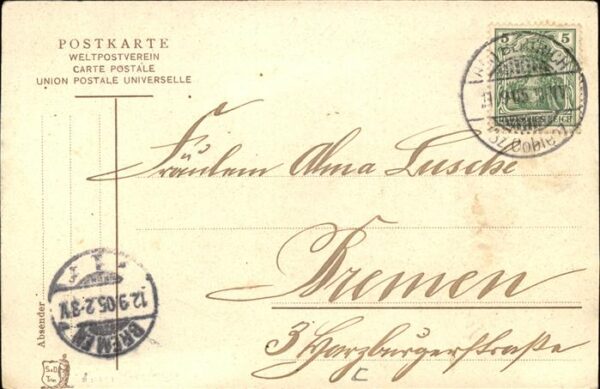 POSTKARTE
WELTPOSTVEREIN
CARTE POSTALE
UNION POSTALE UNIVERSELLE
5 5
DEUTSCHES REICH
BERTRICH
Fräulein Alma Lusche
Bremen
3 Harzburgerstraße
Absender
12.9.05.2-3N.
BREMEN